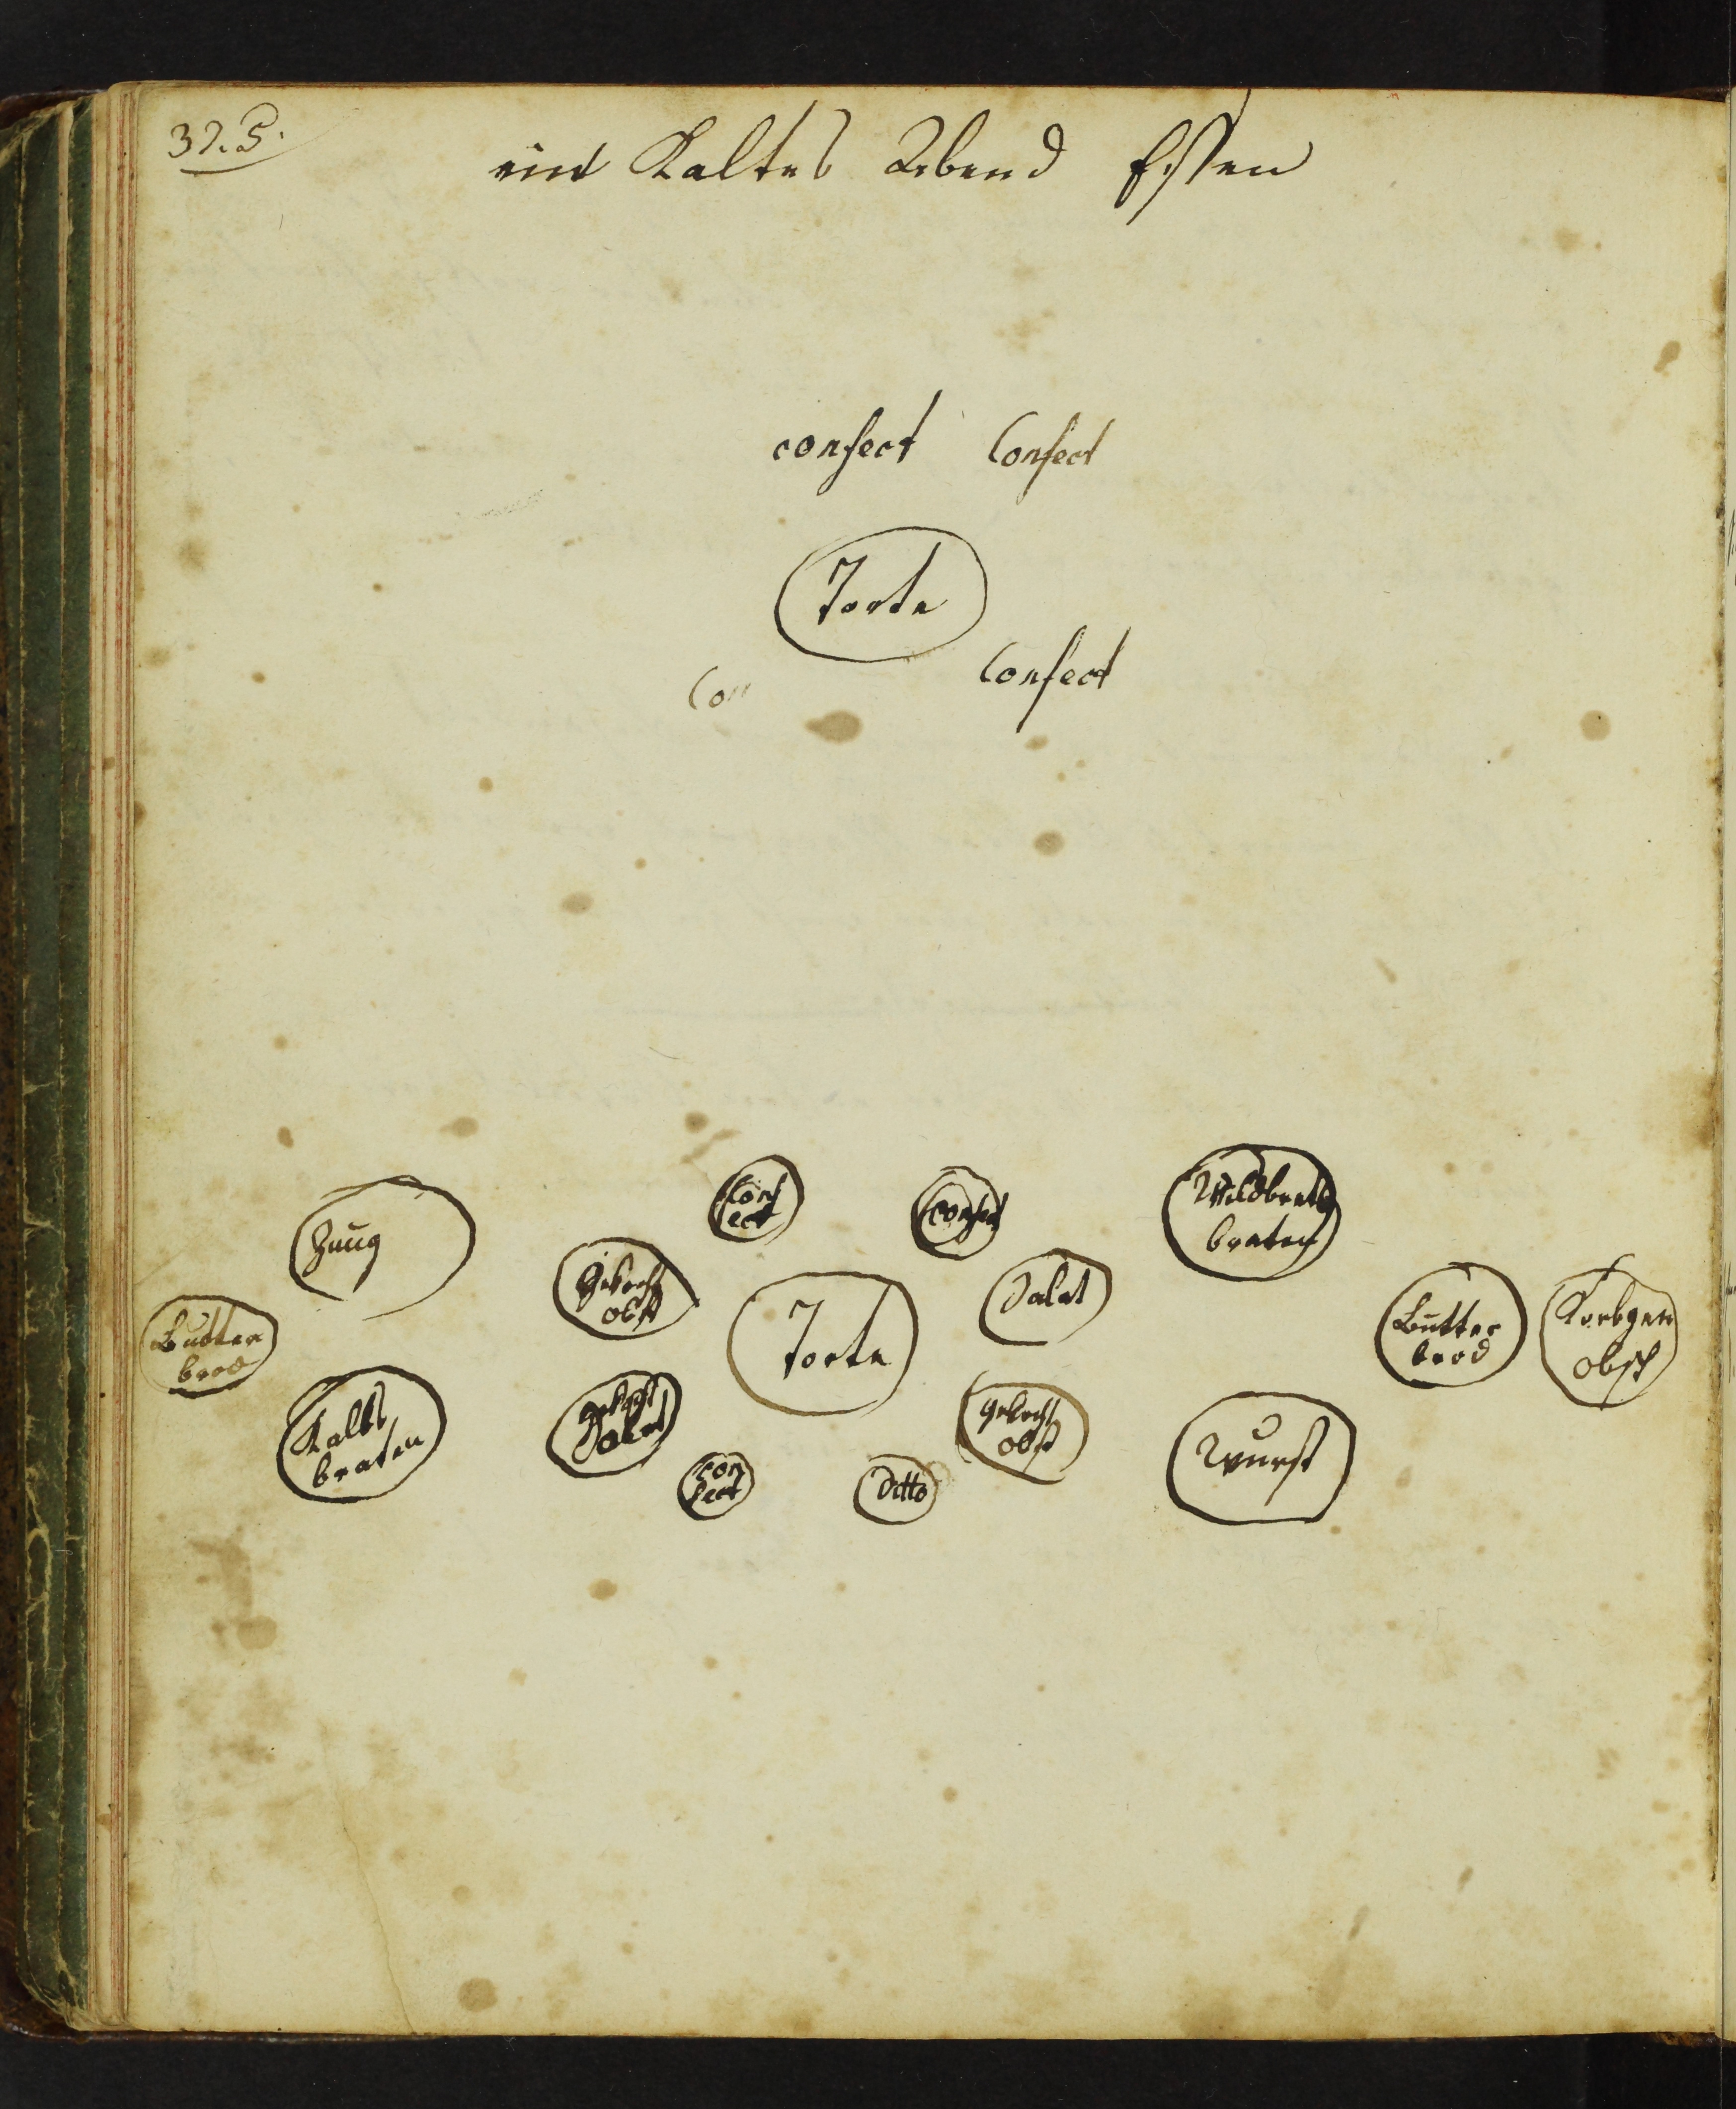 325.
ein Kaltes Abend Essen
confect Confect
Torte
Con Confect
Conf
ect
confect
Wildbrets
braten
Zung
Gekocht
obst
Salat
Torte
Butter
brod
Butter
brod
Korbgen
obst
Kalbs
braten
Salat
gekocht
obst
Wurst
con
fect
Ditto